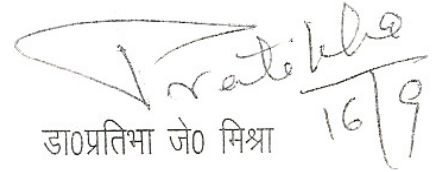 Pratibha
16/9
डा0प्रतिभा जे0 मिश्रा